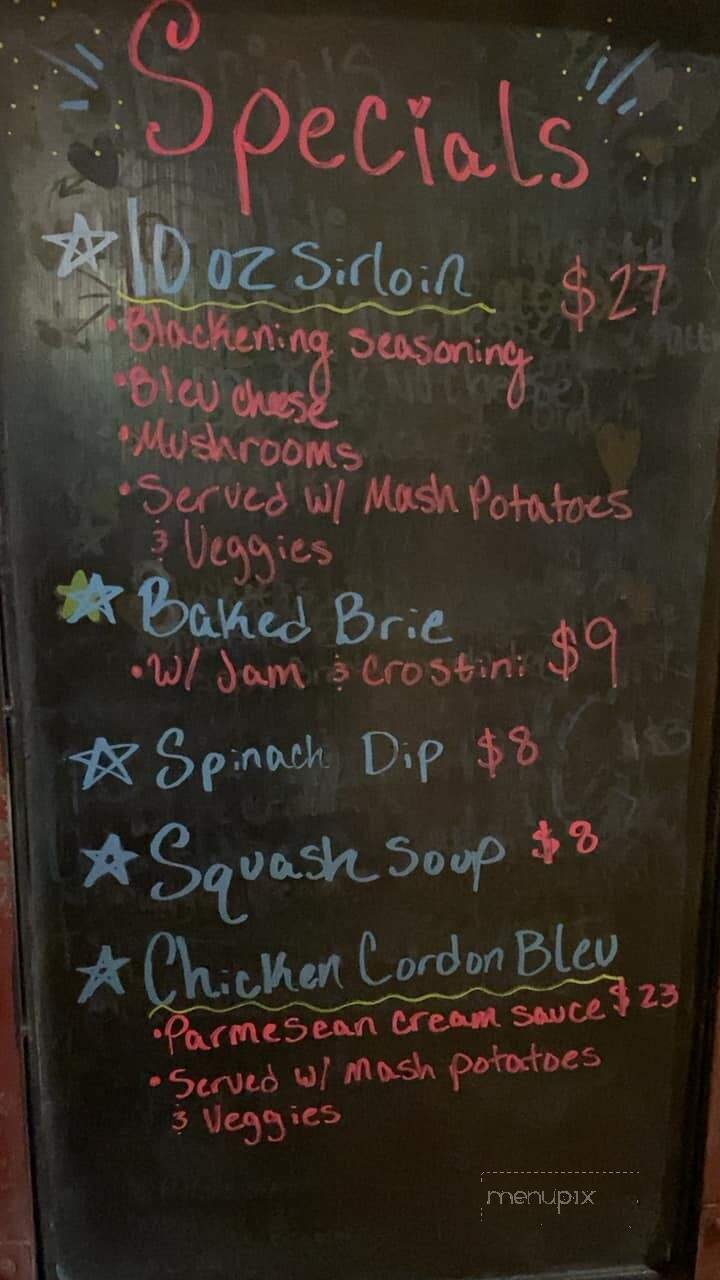 Specials
10 oz Sirloin $27
•Blackening seasoning
•Bleu cheese
•Mushrooms
•Served w/ Mash Potatoes
& Veggies
Baked Brie $9
•w/ Jam & Crostini
Spinach Dip $8
Squash Soup $8
Chicken Cordon Bleu
•Parmesean cream sauce $23
•Served w/ Mash potatoes
& Veggies
menupix